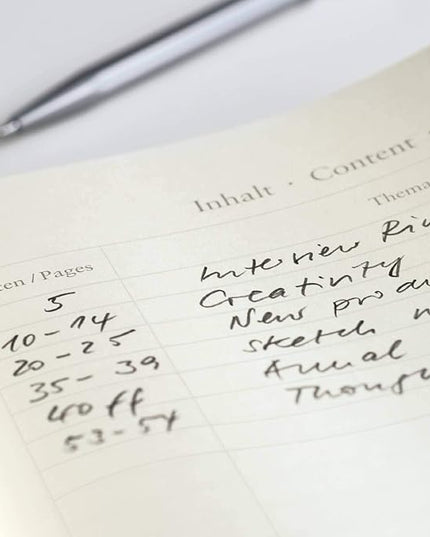 Inhalt · Content
ten / Pages Thema
5 Interview Ri
10 - 14 Creativity
20 - 25 New produ
35 - 39 sketch
40 ff Annual
53 - 54 Thoug